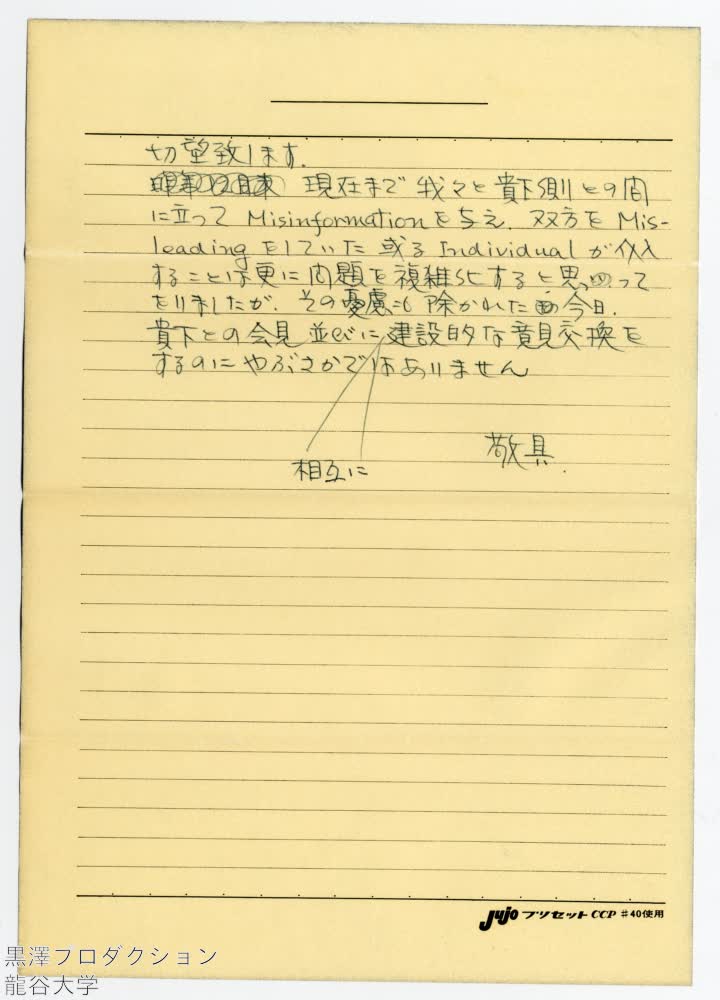 切望致します.
現在まで 我々と貴下側との間
に立って Misinformationを与え. 双方を Mis-
leading をしていた 或る Individual が介入
することは更に問題を複雑化すると思って
をりましたが. その憂慮も除かれた今日.
貴下との会見並びに建設的な意見交換を
するのにやぶさかではありません
相互に
敬具.
Jujo プリセット CCP #40使用
黒澤プロダクション
龍谷大学